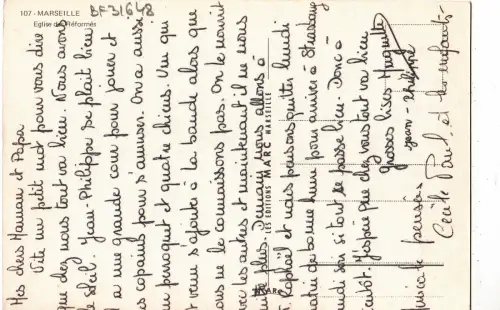 107 - MARSEILLE
Eglise des Réformés
BF31648
LES EDITIONS MARC MARSEILLE
Mes chers Maman et Papa
Vite un petit mot pour vous dire
que chez nous tout va bien. Nous avons
le soleil. Jean-Philippe se plait bien
a une grande cour pour jouer et
copains pour s'amuser. On a aussi
un perroquet et quatre chiens. Un qui
est venu s'ajouter à la bande alors que
nous ne le connaissions pas. On le nourrit
avec les autres et maintenant il ne nous
plus. Demain nous allons à
Raphaël et nous pensons quitter lundi
de bonne heure pour arriver à Strasbourg
si tout se passe bien. Donc à
bientôt. J'espère que chez vous tout va bien
Grosses bises Huguette
Jean-Philippe
pensées
Cécile Paul et les enfants